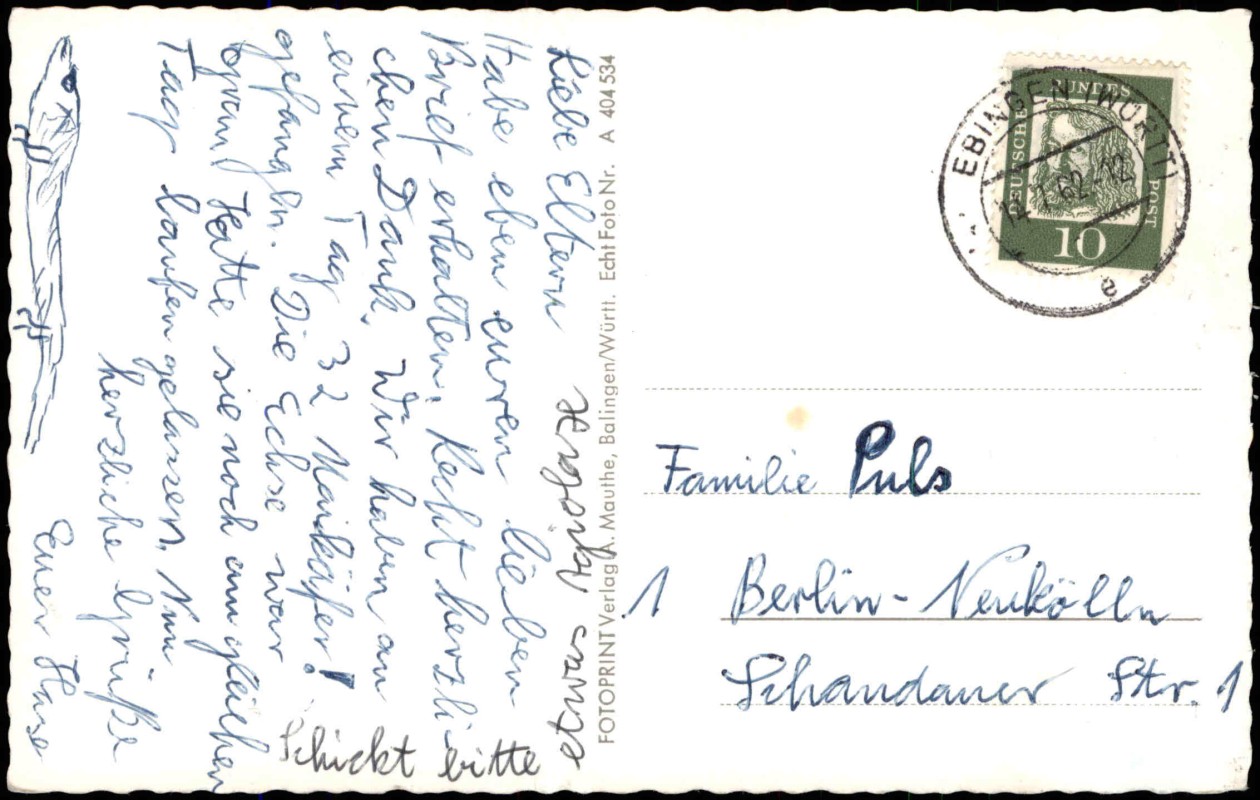 Liebe Eltern
Habe eben euren lieben
Brief erhalten. Recht herzli-
chen Dank. Wir haben an
einem Tag 32 Maikäfer!
gefangen. Die Echse war
grau. Hatte sie noch am gleichen
Tag laufen gelassen. Nun
herzliche Grüße
Euer
Schickt bitte
etwas Migökax
FOTOPRINT Verlag A. Mauthe, Balingen/Württ. Echt Foto Nr. A 404 534
EBINGEN (WÜRTT)
62-12
e
DEUTSCHE BUNDESPOST
10
Familie Puls
1 Berlin-Neukölln
Schandauer Str. 1